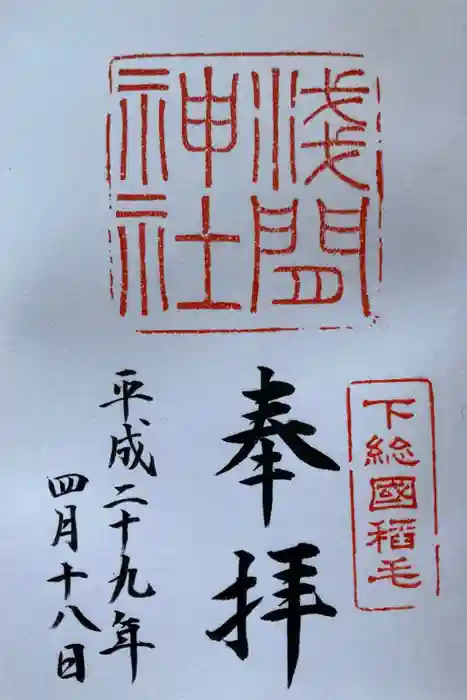 淺間
神社
下総國稲毛
奉拝
平成二十九年
四月十八日